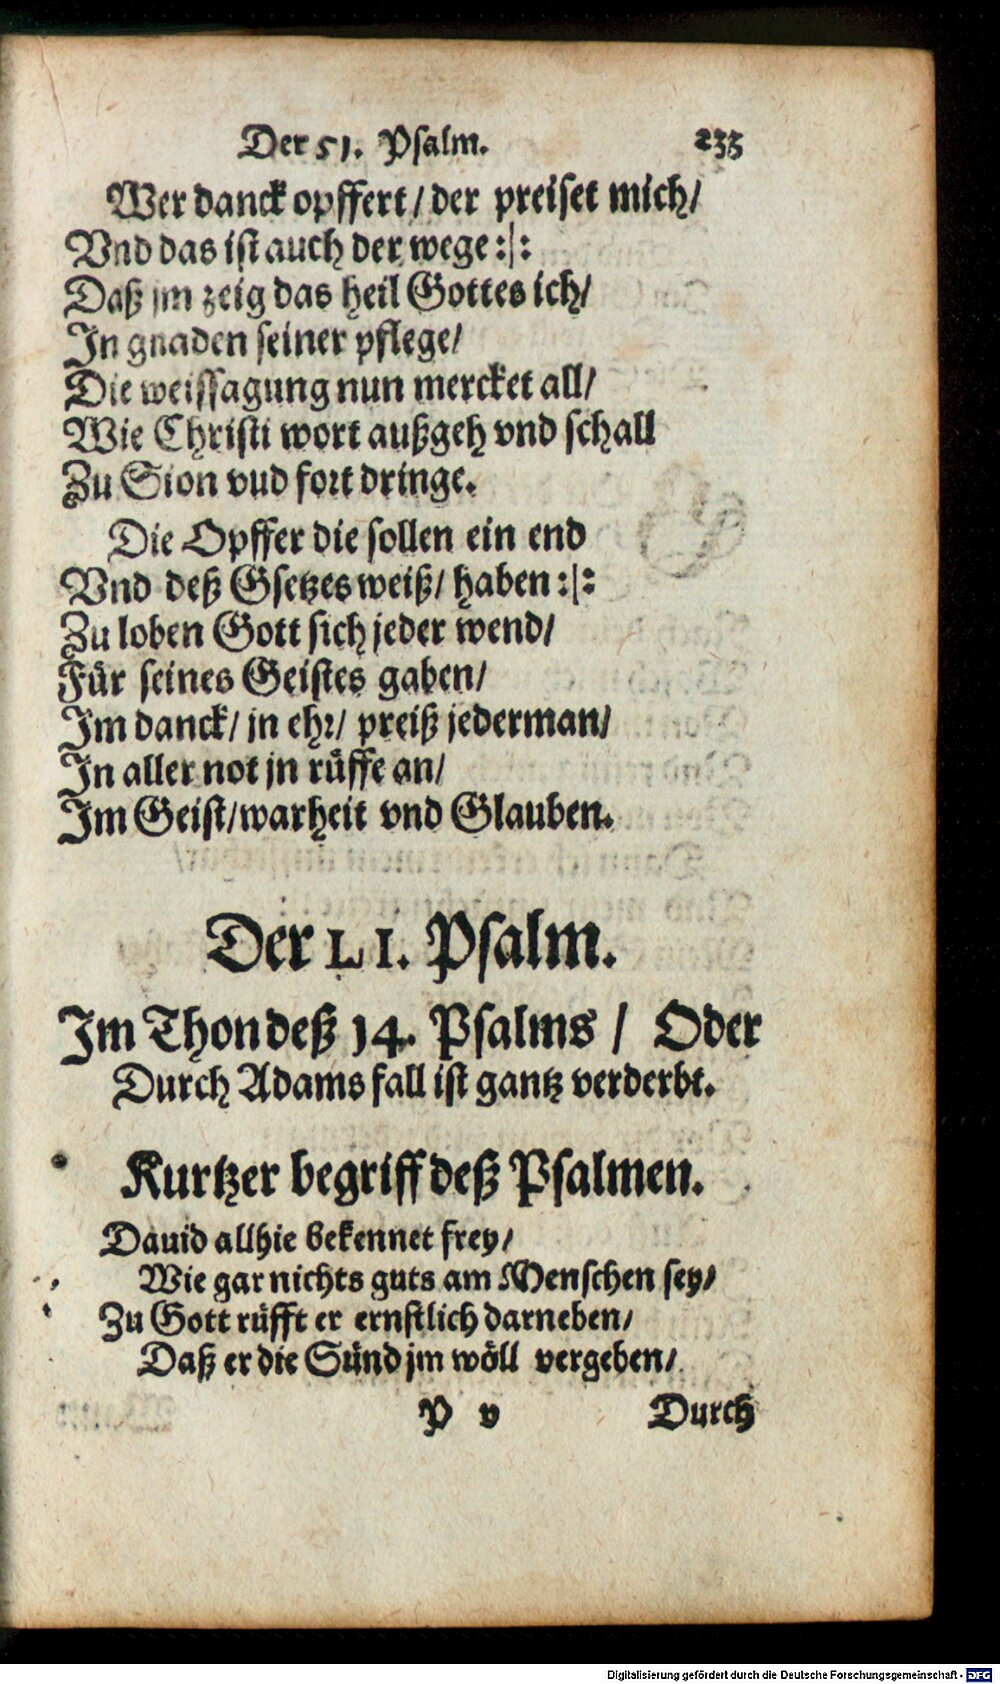 Der 51. Psalm. 233
Wer danck opffert / der preiset mich /
Vnd das ist auch der wege :|:
Daß jm zeig das heil Gottes ich /
In gnaden seiner pflege /
Die weissagung nun mercket all /
Wie Christi wort außgeh vnd schall
Zu Sion vud fort dringe.
Die Opffer die sollen ein end
Vnd deß Gsetzes weiß / haben :|:
Zu loben Gott sich jeder wend /
Für seines Geistes gaben /
Im danck / jn ehr / preiß jederman /
In aller not jn rüffe an /
Im Geist / warheit vnd Glauben.
Der LI. Psalm.
Im Thon deß 14. Psalms / Oder
Durch Adams fall ist gantz verderbt.
Kurtzer begriff deß Psalmen.
Dauid allhie bekennet frey /
Wie gar nichts guts am Menschen sey /
Zu Gott rüfft er ernstlich darneben /
Daß er die Sünd jm wöll vergeben /
P v Durch
Digitalisierung gefördert durch die Deutsche Forschungsgemeinschaft - DFG